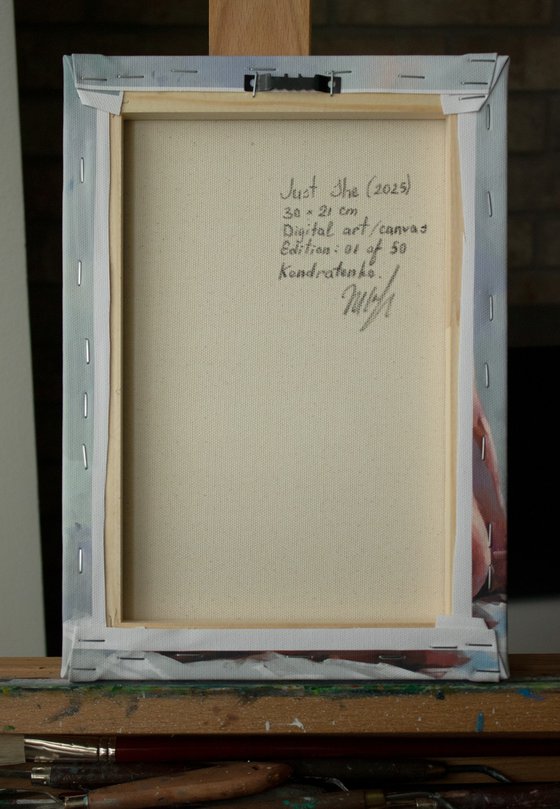 Just She (2025)
30 × 21 cm
Digital art/canvas
Edition: 01 of 50
Kondratenko.